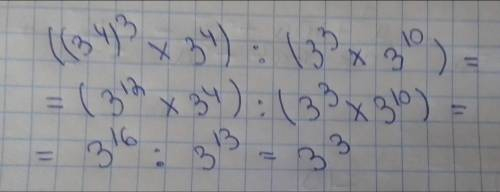 ((3⁴)³ × 3⁴) : (3³ × 3¹⁰) =
= (3¹² × 3⁴) : (3³ × 3¹⁰) =
= 3¹⁶ : 3¹³ = 3³